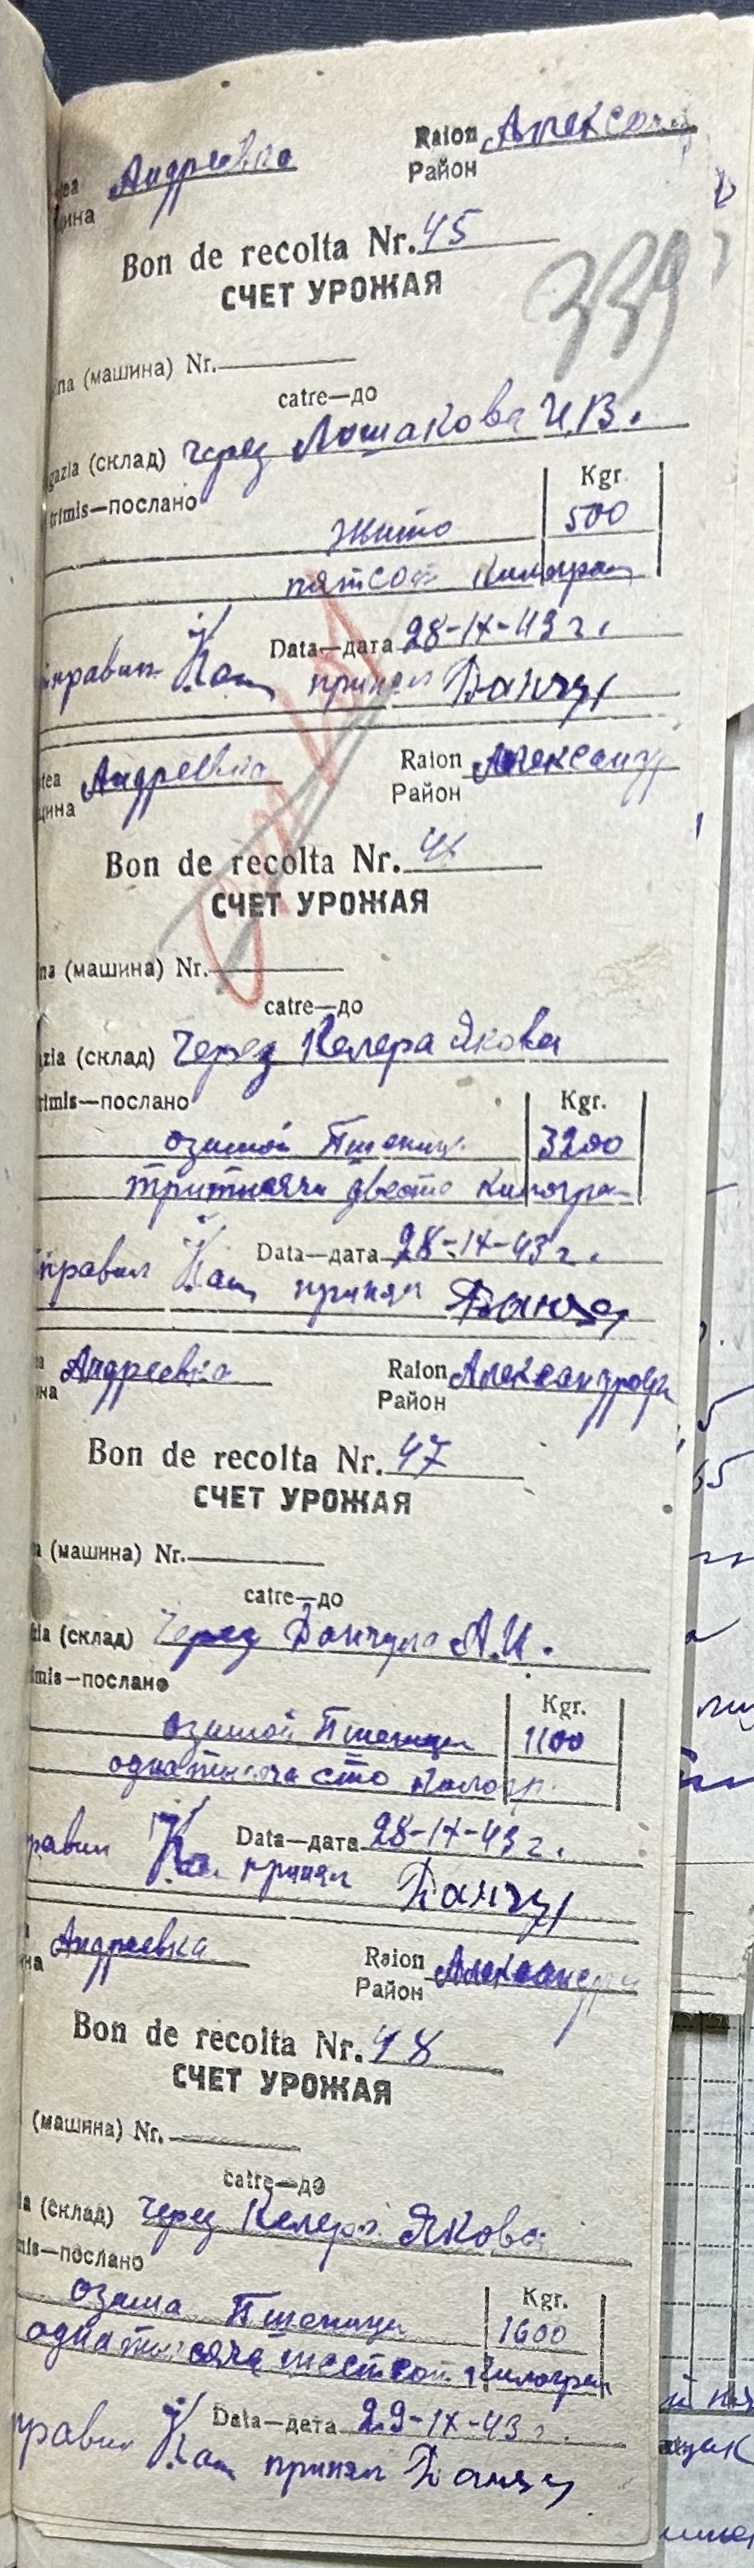 tea Андреевка Raion Александ
щина Район
Bon de recolta Nr. 45
СЧЕТ УРОЖАЯ
339
na (машина) Nr.
catre—до
gazia (склад) через Лошакова И.В.
trimis—послано Kgr
жито 500
пятсот килограм
Data—дата 28-IX-43 г.
правил принял
tea Андреевка Raion Александр
щина Район
Bon de recolta Nr. 46
СЧЕТ УРОЖАЯ
na (машина) Nr.
catre—до
azia (склад) Через Келера Якова
rimis—послано Kgr.
озимой Пшениц 3200
тритисячи двести килогра
Data—дата 28-IX-43 г.
правил принял
a Андреевка Raion Александров
на Район
Bon de recolta Nr. 47
СЧЕТ УРОЖАЯ
a (машина) Nr.
catre—до
zia (склад) Через А.И.
imis—послано Kgr.
озимой Пшеницы 1100
однатисяча сто килогр.
Data—дата 28-IX-43 г.
равил принял
Андреевка Raion Александр
на Район
Bon de recolta Nr. 48
СЧЕТ УРОЖАЯ
(машина) Nr.
catre—до
ia (склад) через Келера Якова
mis—послано Kgr.
озима Пшеници 1600
однатисяча шестсот килограм
Data—дата 29-IX-43 г.
правил принял